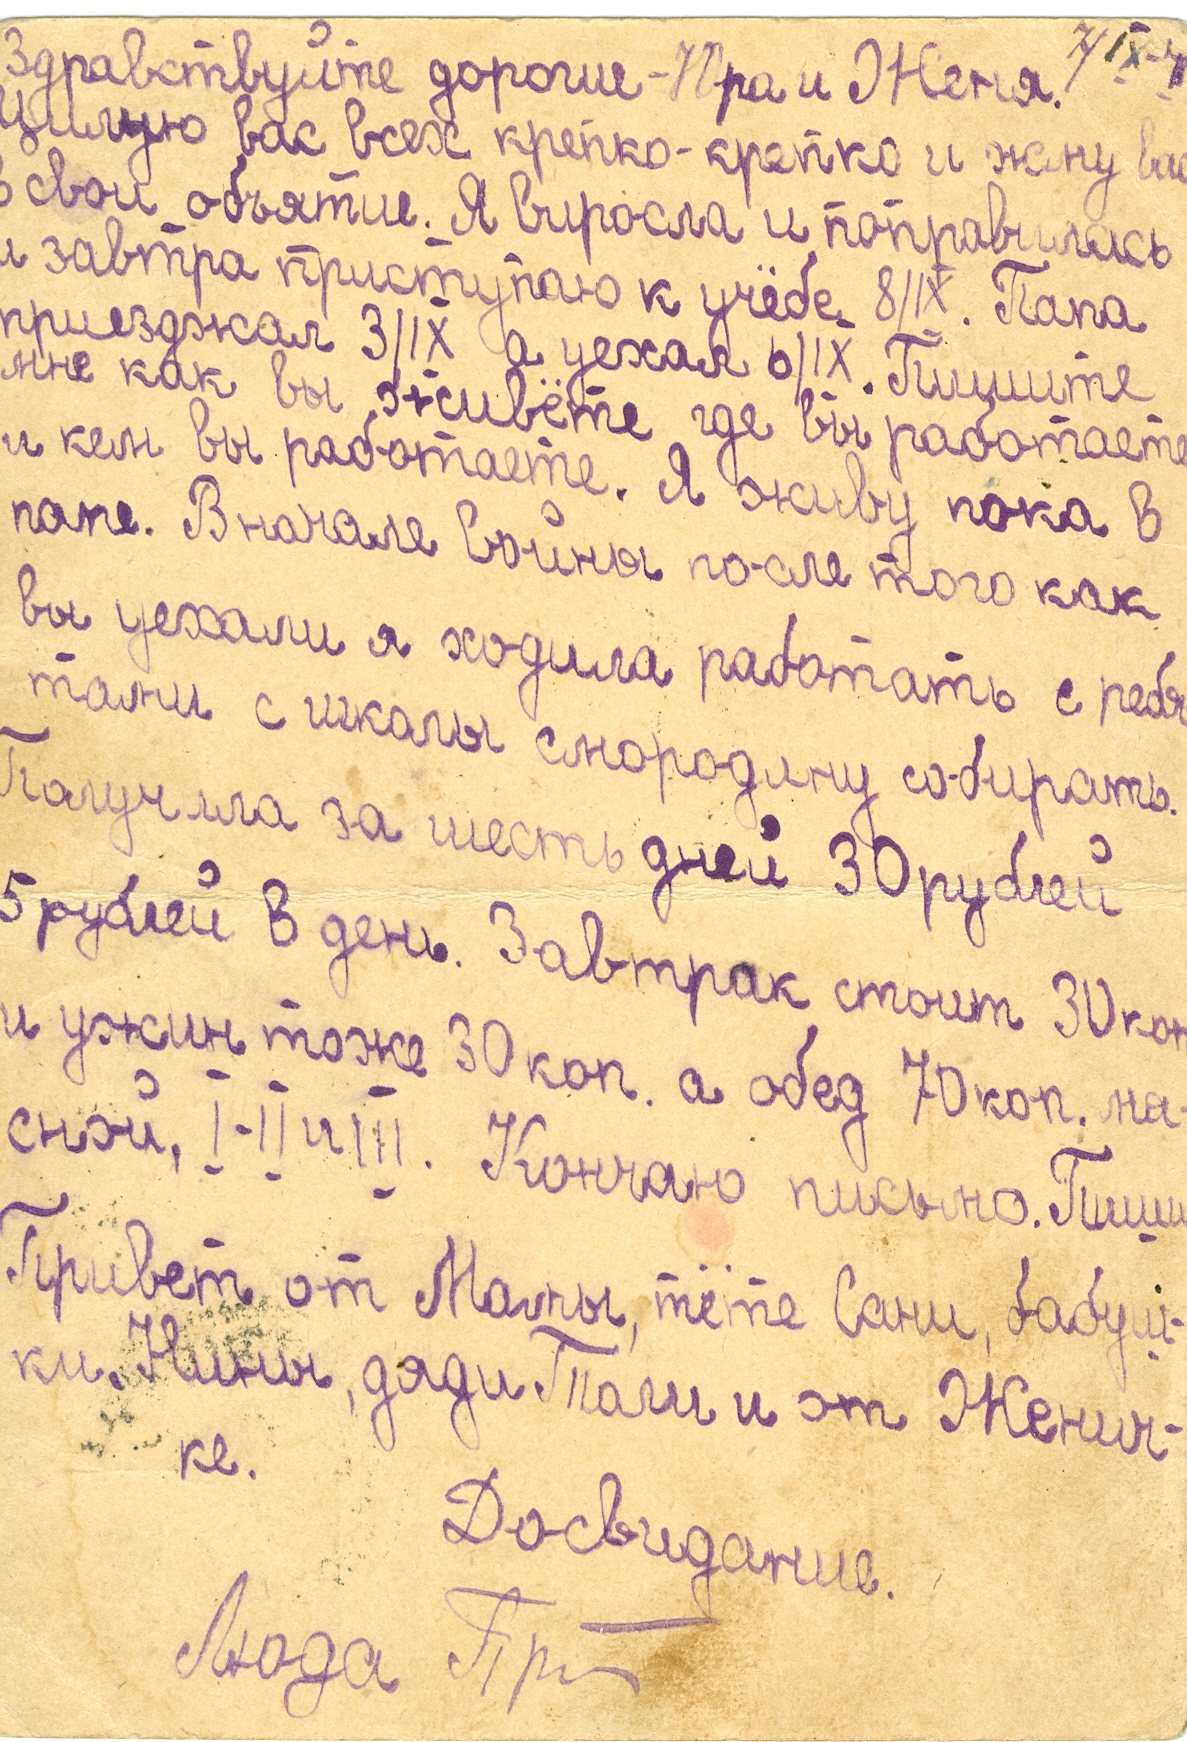 Здравствуйте дорогие - Ира и Женя. 7/IX-4
Цилую вас всех крепко-крепко и жму вас
в свои объятие. Я выросла и поправилась
и завтра приступаю к учёбе. 8/IX. Папа
приезджал 3/IX а уехал 6/IX. Пишите
мне как вы живёте где вы работаете
и кем вы работаете. Я живу пока в
попе. Вначале войны после того как
вы уехали я ходила работать с ребя
тами с шкалы смородину собирать.
Получила за шесть дней 30 рублей
5 рублей в день. Завтрак стоит 30 коп
и ужин тоже 30 коп. а обед 70 коп. мя-
сной, I-II и III. Кончаю письмо. Пиши
Привет от Мамы, тёте Сани, бабуш-
ки. Нины, дяди Толи и от Женич-
ке.
Досвидание.
Люда